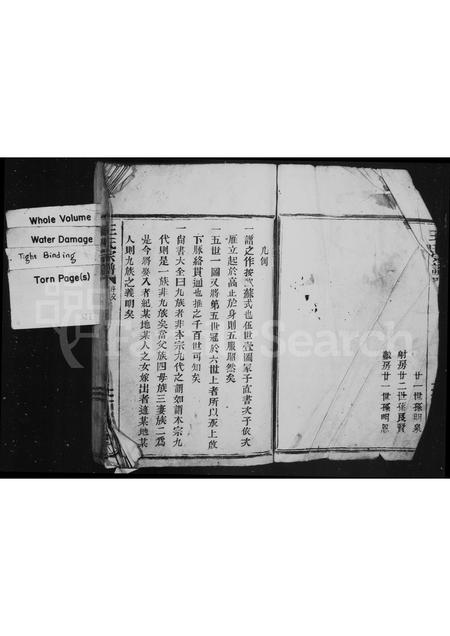 Whole Volume
Water Damage
Tight Binding
Torn Page(s)
廿一世孫明泉
射房廿二世孫良賢
廿一世孫明恩
凡例
一譜之作按歐蘇式也伍世壹圖冢子直書次子依次
雁立起於高止於身則五服瞭然矣
一五世一圖又將第五世冠於六世上者所以承上啟
下脉絡貫通也推之千百世可知矣
一尚書大全曰九族者非本宗九代之謂如謂本宗九
代則是一族非九族矣當父族四母族三妻族二爲
是今將娶入者紀某地某人之女嫁出者適某地某
人則九族之義明矣